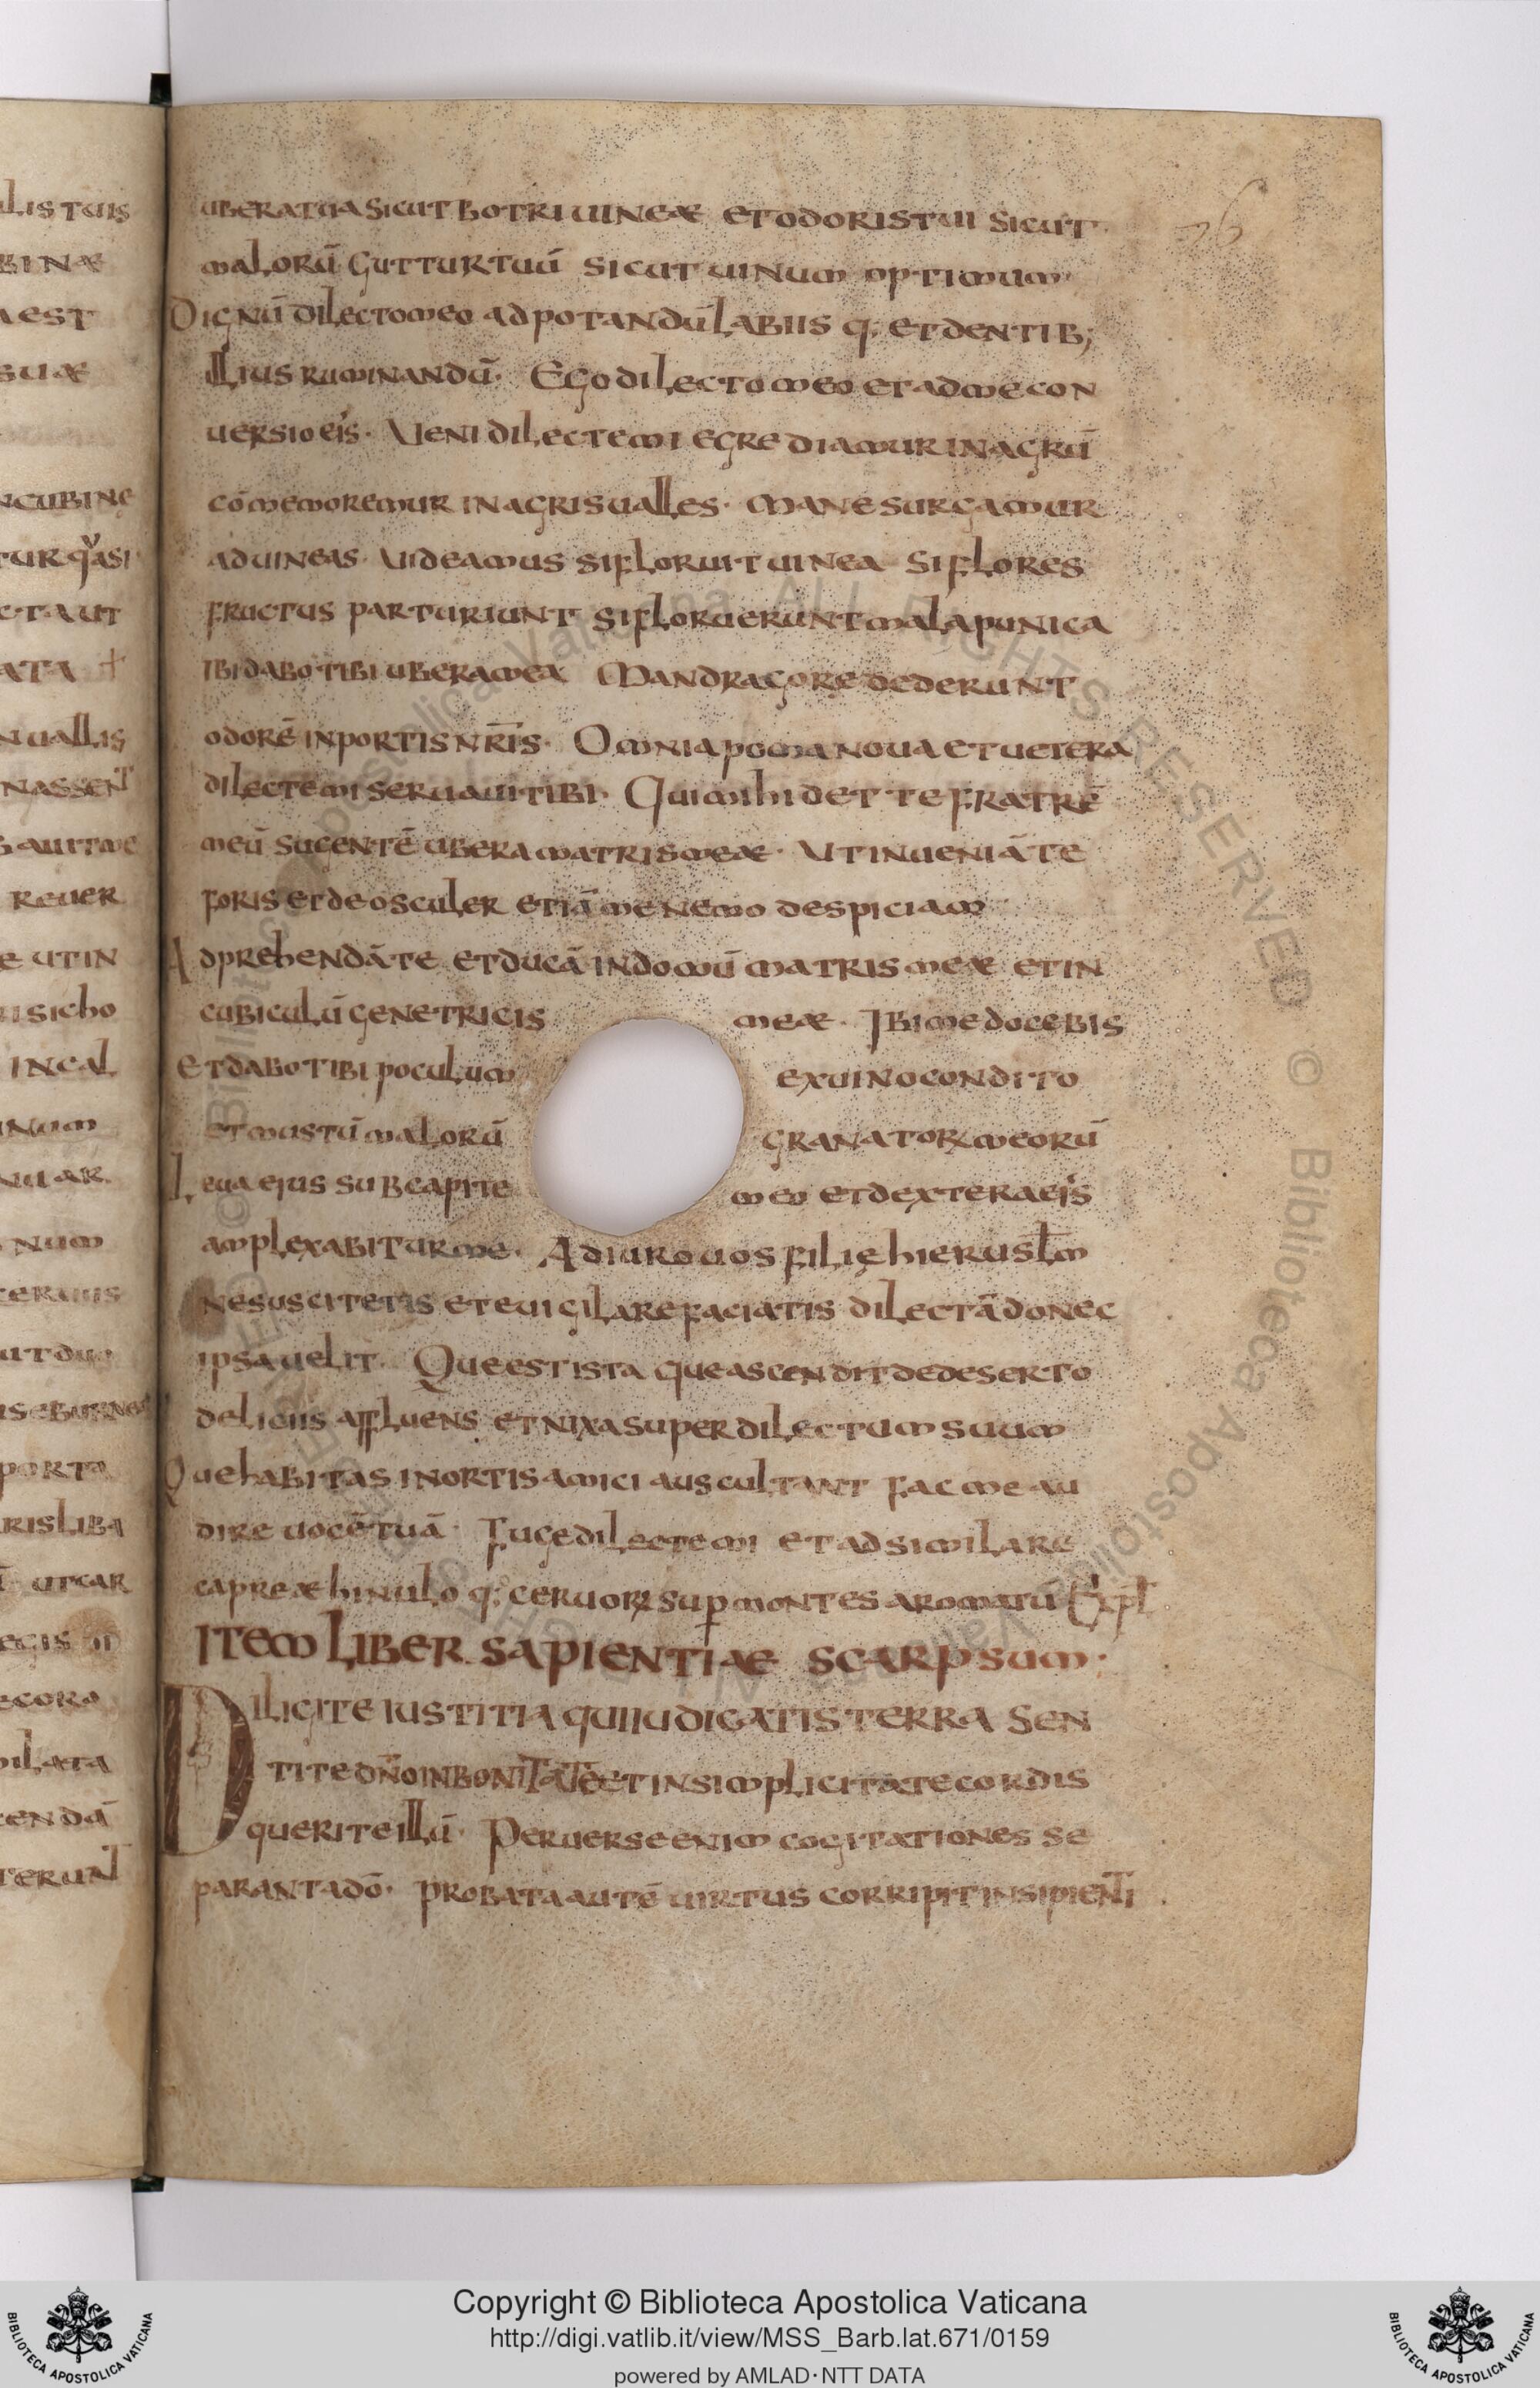 lis tuis
binæ
a est
suæ
ncubine
tur quasi
cta ut
ata
n uallis
nassent
sauit me
reuer
e ut in
u sicbo
in cal
inum
nu ar
num
ut du
is eburnea
porta
ris liba
ut car
egis
ecora
ilata
cendā
terunt
ubera tua sicut botri uineæ et odoris tui sicut
malorū Guttur tuū sicut uinum optimum
Dignū dilecto meo ad potandū labiis q; et dentib;
illius ruminandū. Ego dilecto meo et ad me con
uersio eis. Ueni dilecte mi egrediamur in agrū
cōmemoremur in agris ualles. Mane surgamur
ad uineas. Uideamus si floruit uinea Si flores
fructus parturiunt si floruerunt mala punica
ibi dabo tibi ubera mea Mandragore dederunt
odorē in portis nr̄is. Omnia poma noua et uetera
dilecte mi seruaui tibi. Qui mihi det te fratrē
meū sugentē ubera matris meæ. Ut inueniā te
foris et deosculer etiā me nemo despiciam
Adprehendā te et ducā in domū matris meæ et in
cubiculū genetricis meæ. Ibi me docebis
et dabo tibi poculum ex uino condito
et mustū malorū granatorꝝ meorū
Leua ejus sub capite meo et dextera eis
amplexabitur me. Adiuro uos filię hieruslm̄
ne suscitetis et euigilare faciatis dilectā donec
ipsa uelit. Que est ista que ascendit de deserto
deliciis affluens et nixa super dilectum suum
Que habitas in ortis amici auscultant fac me au
dire uocē tuā. Fuge dilecte mi et adsimilare
capreæ hinulo q; ceruorꝝ sup montes aromatū Expl
Item Liber Sapientiae scarpsum.
Diligite iustitia qui iudicatis terra Sen
tite dn̄o in bonitatē et in simplicitate cordis
querite illū. Peruerse enim cogitationes se
parant a dō. Probata autē uirtus corripit insipienti
26
© Biblioteca Apostolica Vaticana. ALL RIGHTS RESERVED
Copyright © Biblioteca Apostolica Vaticana
http://digi.vatlib.it/view/MSS_Barb.lat.671/0159
powered by AMLAD·NTT DATA
BIBLIOTECA APOSTOLICA VATICANA
BIBLIOTECA APOSTOLICA VATICANA